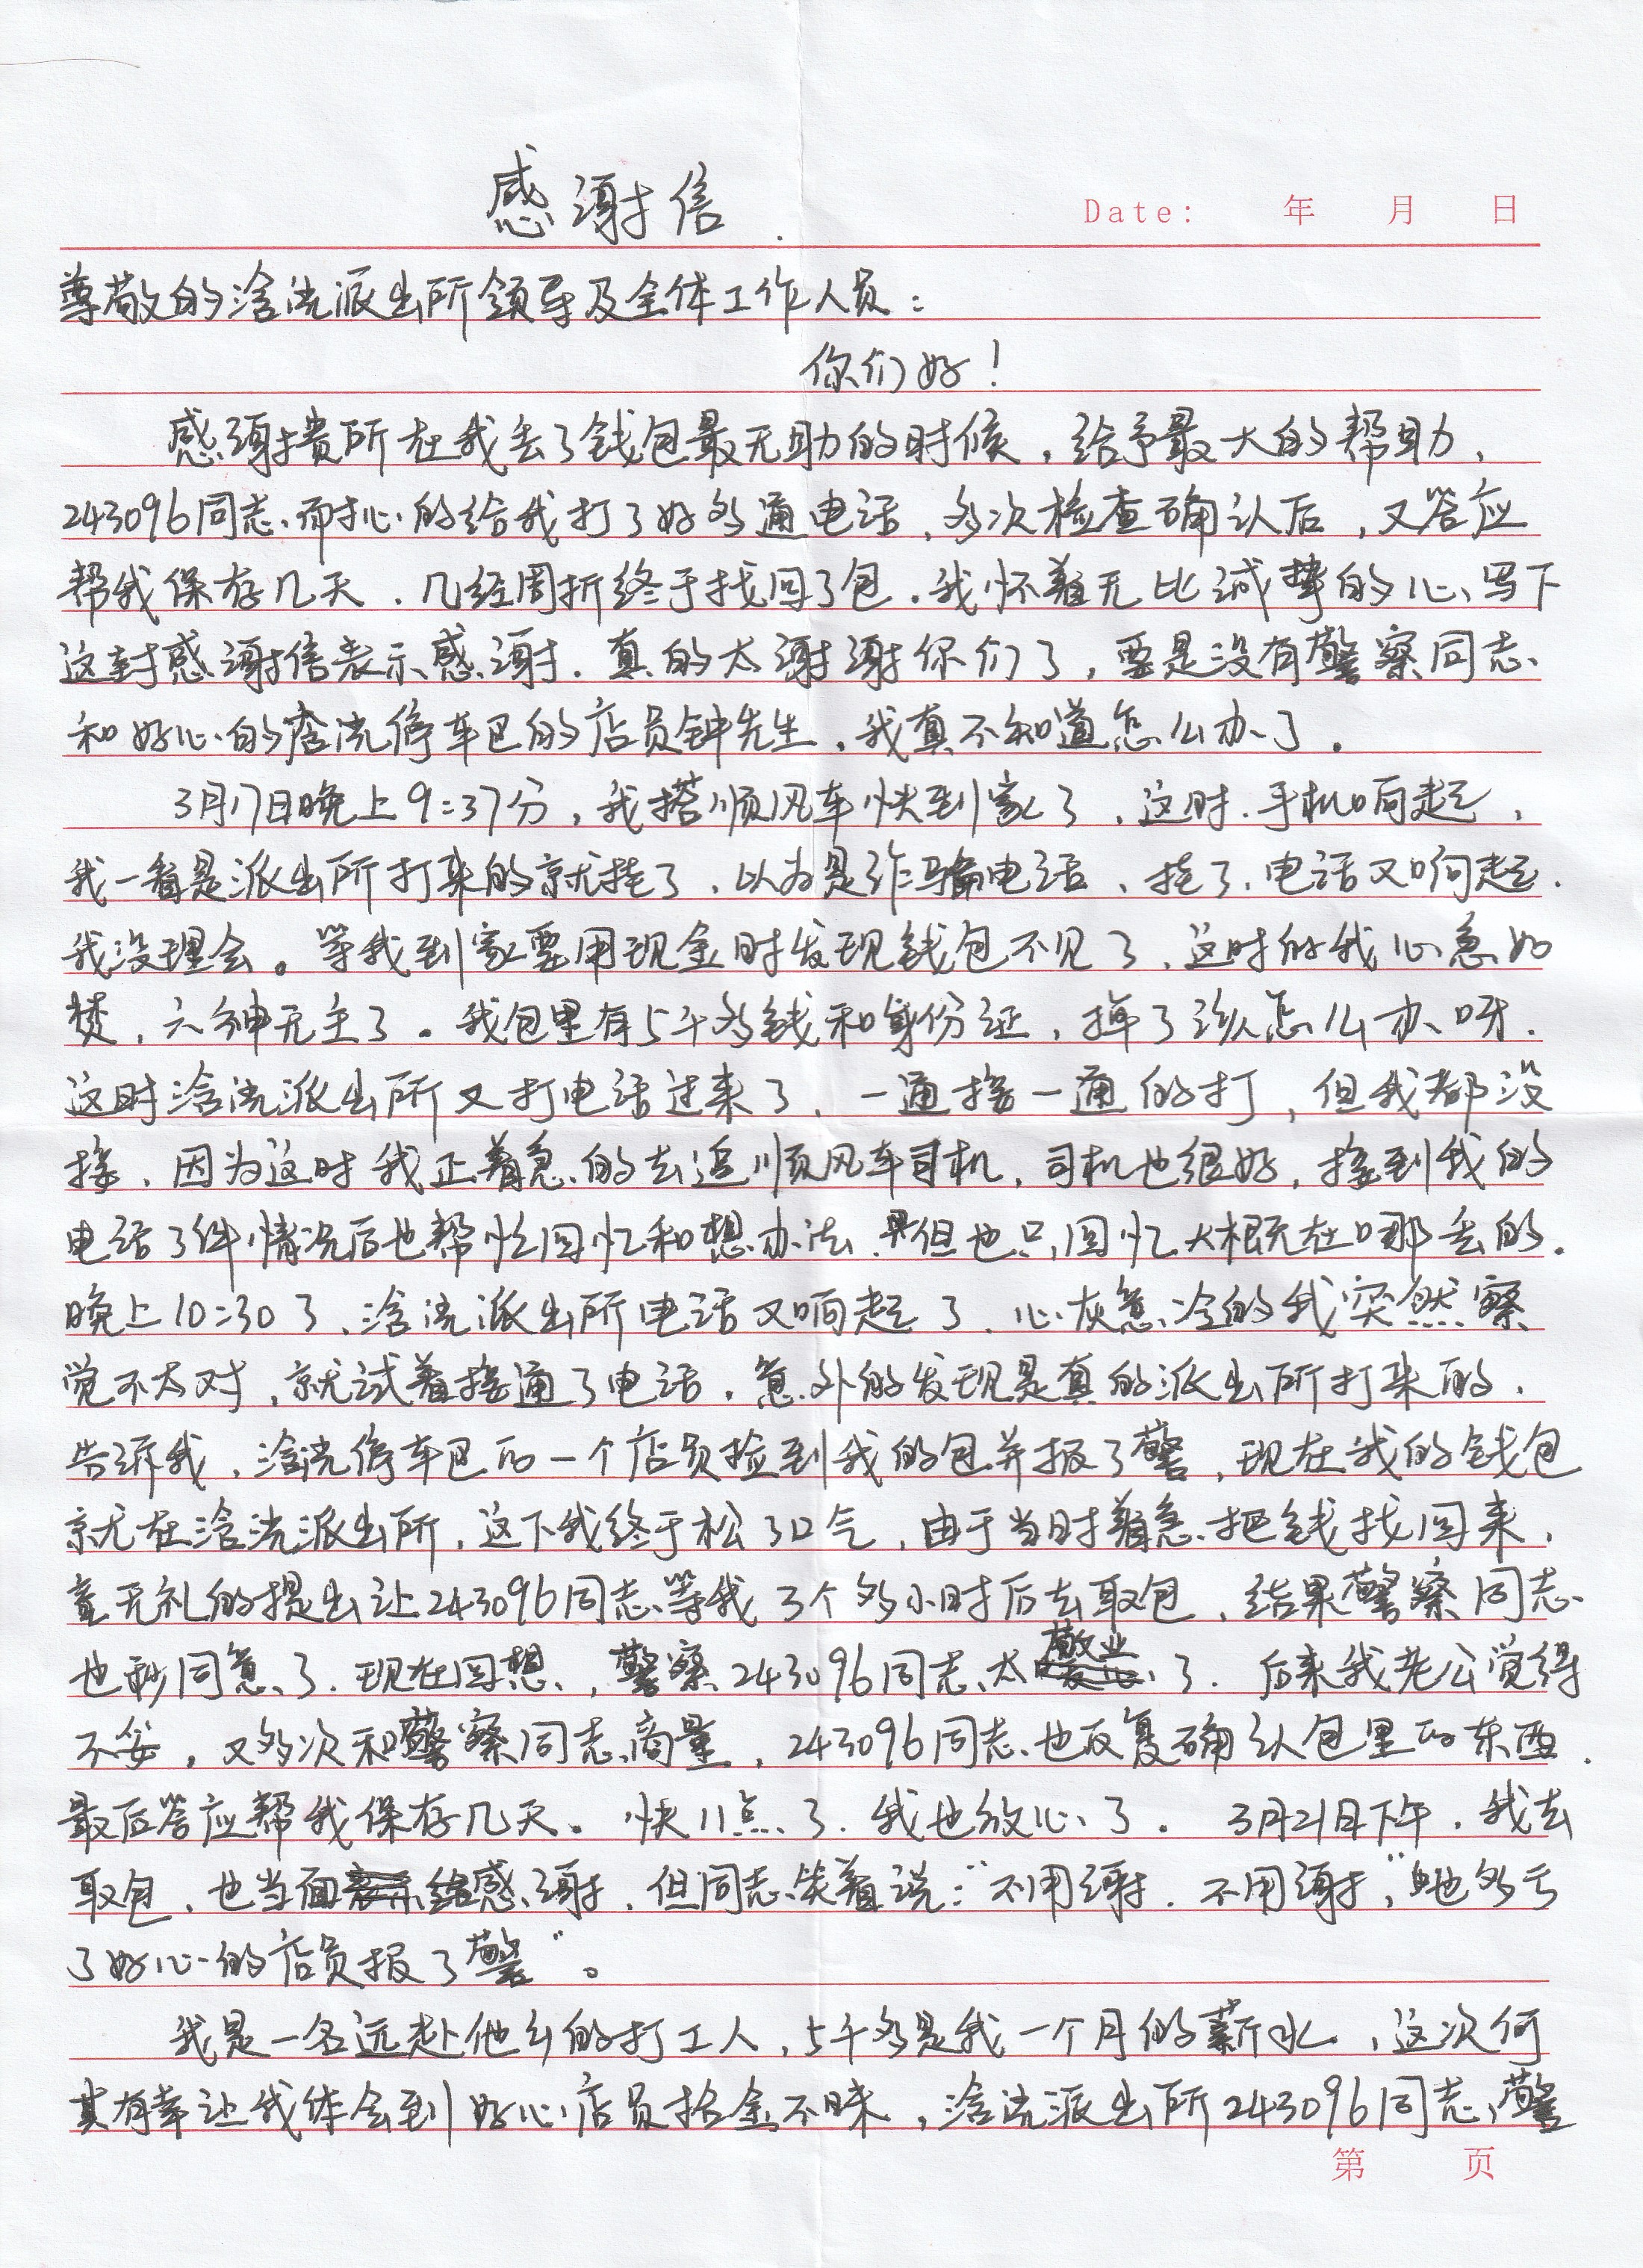 感谢信
Date: 年 月 日
尊敬的浛洸派出所领导及全体工作人员：
你们好！
感谢贵所在我丢了钱包最无助的时候，给予最大的帮助，
243096同志耐心的给我打了好多通电话，多次检查确认后，又答应
帮我保存几天，几经周折终于找回了包。我怀着无比诚挚的心写下
这封感谢信表示感谢。真的太谢谢你们了，要是没有警察同志
和好心的浛洸停车巴的店员钟先生，我真不知道怎么办了。
3月17日晚上9:37分，我搭顺风车快到家了，这时手机响起，
我一看是派出所打来的就挂了，以为是诈骗电话，挂了，电话又响起，
我没理会。等我到家要用现金时发现钱包不见了，这时的我心急如
焚，六神无主了。我包里有5千多钱和身份证，掉了该怎么办呀。
这时浛洸派出所又打电话过来了，一通接一通的打，但我都没
接，因为这时我正着急的去追顺风车司机，司机也很好，接到我的
电话了件情况后也帮忙回忆和想办法，但也只回忆大概在哪丢的。
晚上10:30了，浛洸派出所电话又响起了，心灰意冷的我突然察
觉不太对，就试着接通了电话。意外的发现是真的派出所打来的，
告诉我，浛洸停车巴的一个店员捡到我的包并报了警，现在我的钱包
就在浛洸派出所，这下我终于松了口气，由于当时着急把钱找回来，
竟无礼的提出让243096同志等我3个多小时后去取包，结果警察同志
也秒同意了。现在回想，警察243096同志太敬业了。后来我老公觉得
不妥，又多次和警察同志商量，243096同志也反复确认包里的东西，
最后答应帮我保存几天。快11点了，我也放心了。3月21日下午，我去
取包，也当面给感谢，但同志笑着说：“不用谢，不用谢，”“也多亏
了好心的店员报了警”。
我是一名远赴他乡的打工人，5千多是我一个月的薪水，这次何
其有幸让我体会到好心店员拾金不昧，浛洸派出所243096同志、警
第 页